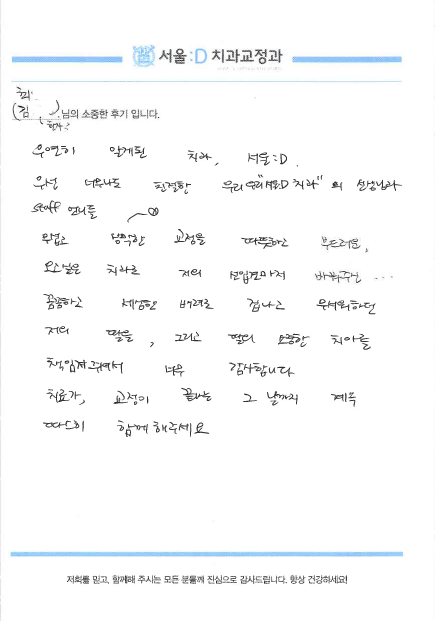 서울:D 치과교정과
최
(김 ).님의 소중한 후기 입니다.
우연히 알게된 치과, 서울:D.
우선 너무나도 친절한 우리 "서울:D 치과"의 선생님과
staff 언니들
무섭고 딱딱한 교정을 따뜻하고 부드러운,
치과로 저의 선입견마저 바꿔주신 ...
꼼꼼하고 세심한 배려로 겁나고 무서워하던
저의 딸을, 그리고 딸의 소중한 치아를
책임져주셔서 너무 감사합니다
치료가, 교정이 끝나는 그 날까지 계속
따스히 함께 해주세요
저희를 믿고, 함께해 주시는 모든 분들께 진심으로 감사드립니다. 항상 건강하세요!